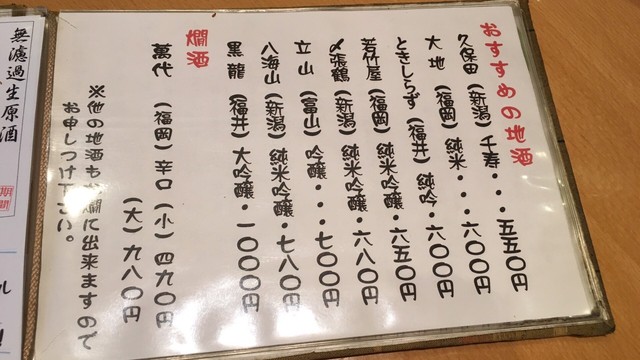 おすすめの地酒
久保田(新潟)千寿・・・五五〇円
大地(福岡)純米・・・六〇〇円
ときしらず(福井)純吟・六〇〇円
若竹屋(福岡)純米吟醸・六五〇円
〆張鶴(新潟)純米吟醸・六八〇円
立山(富山)吟醸・・・七〇〇円
八海山(新潟)純米吟醸・七八〇円
黒龍(福井)大吟醸・一〇〇〇円
燗酒
萬代(福岡)辛口(小)四九〇円
(大)九八〇円
※他の地酒もお燗に出来ますので
お申しつけ下さい。
無濾過生原酒